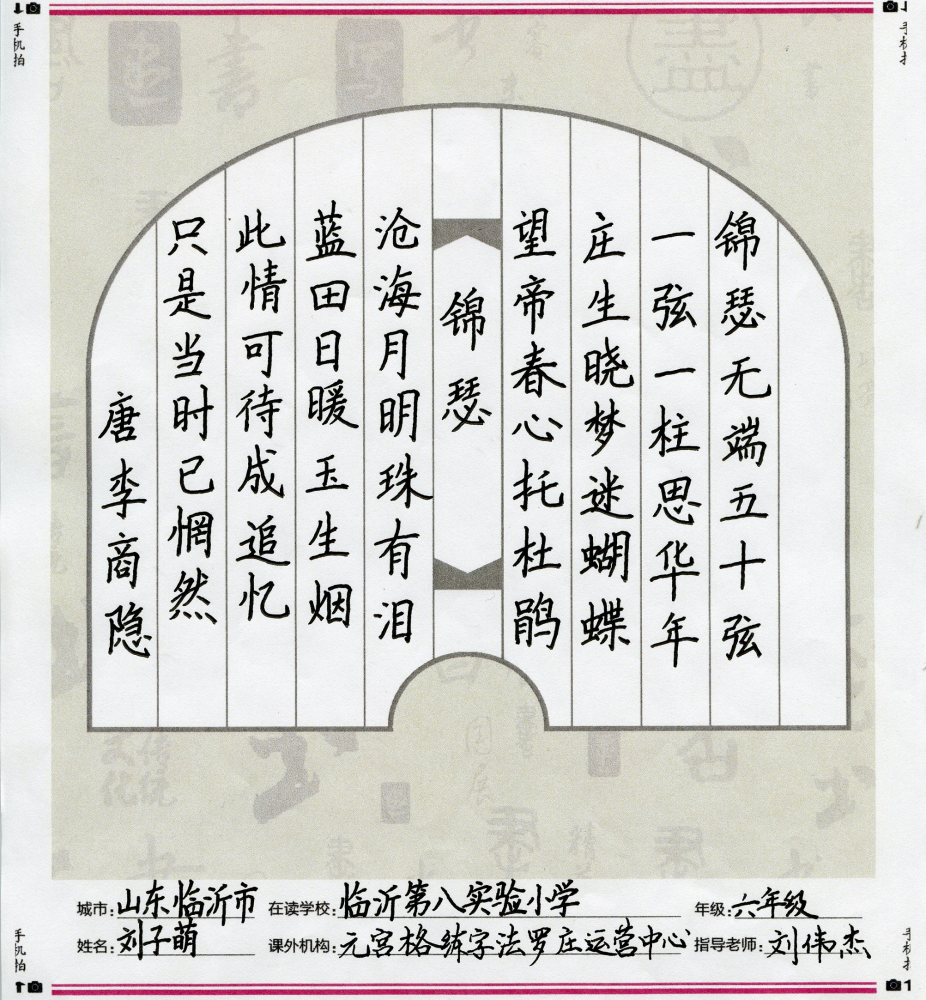 锦瑟无端五十弦
一弦一柱思华年
庄生晓梦迷蝴蝶
望帝春心托杜鹃
锦瑟
沧海月明珠有泪
蓝田日暖玉生烟
此情可待成追忆
只是当时已惘然
唐李商隐
城市:山东临沂市 在读学校:临沂第八实验小学 年级:六年级
姓名:刘子萌 课外机构:元宫格练字法罗庄运营中心 指导老师:刘伟杰
手机拍
手机拍
手机拍
手机拍